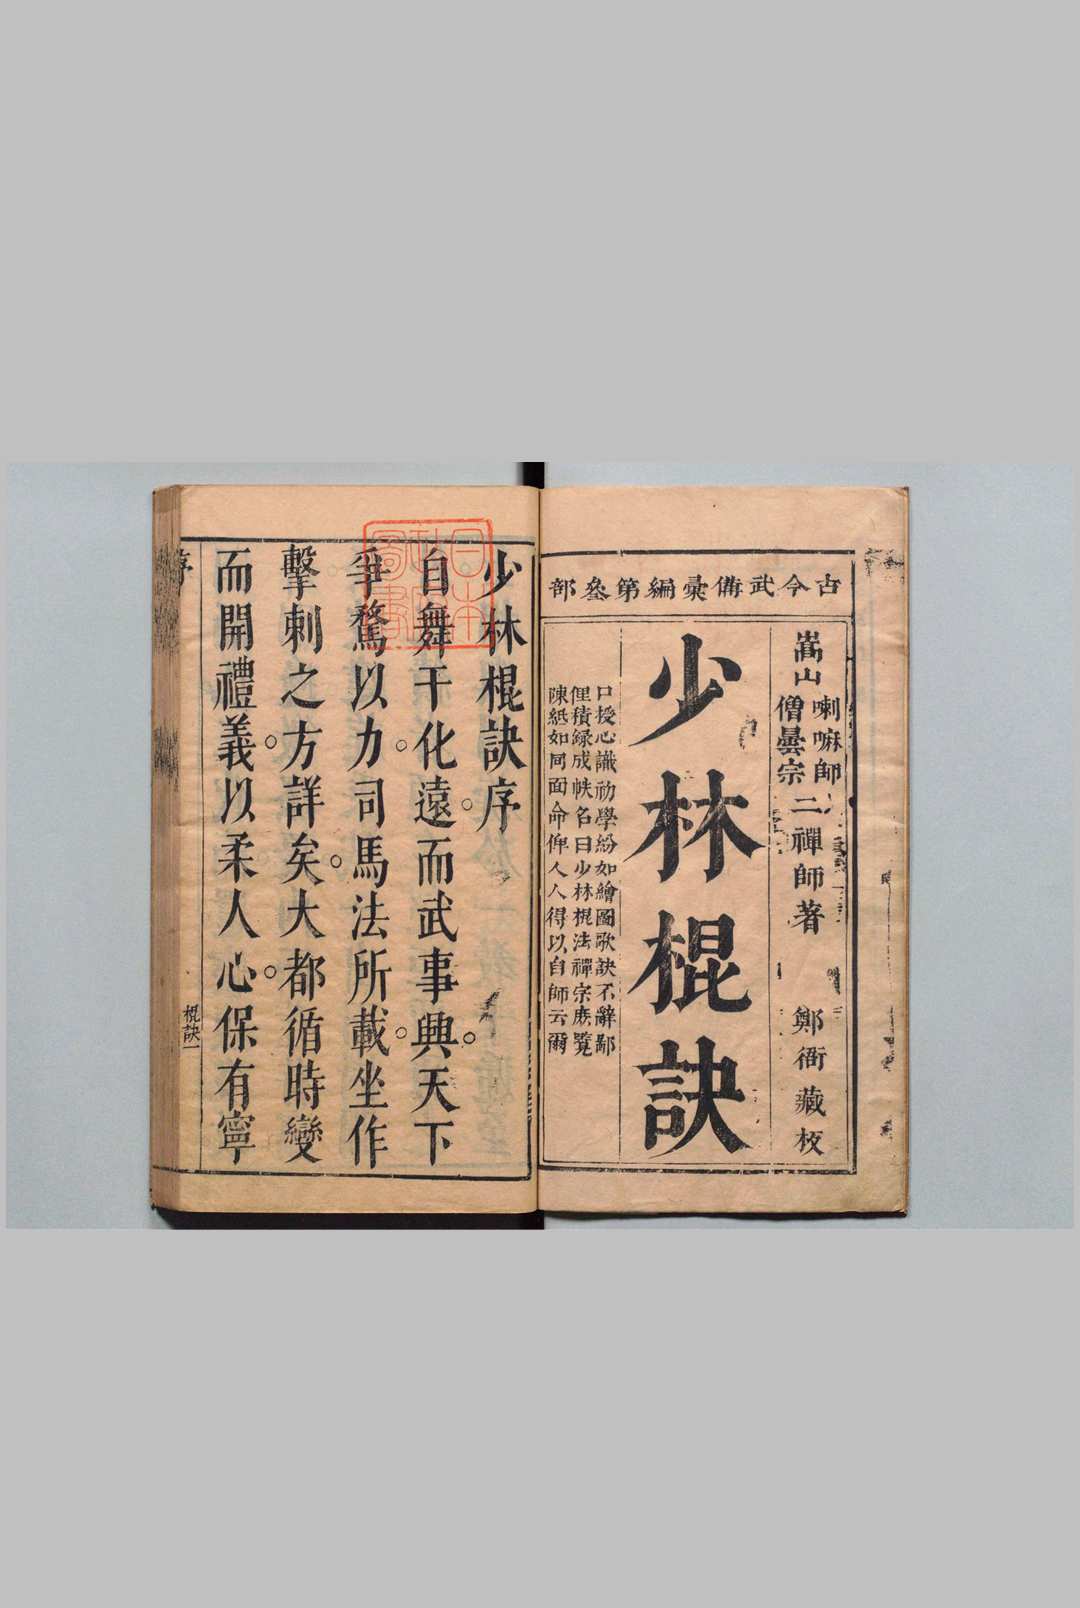 古今武備彙編第叄部
嵩山
喇嘛師
僧曇宗
二禪師著
鄭衙藏板
少林棍訣
口授心識初學紛如繪圖歌訣不辭鄙
俚積録成帙名曰少林棍法禪宗庶覽
陳紙如同面命俾人人得以自師云爾
少林棍訣序
自舞干化遠而武事興天下
爭騖以力司馬法所載坐作
擊刺之方詳矣大都循時變
而開禮義以柔人心保有寧
序
棍訣一
日本
圖書